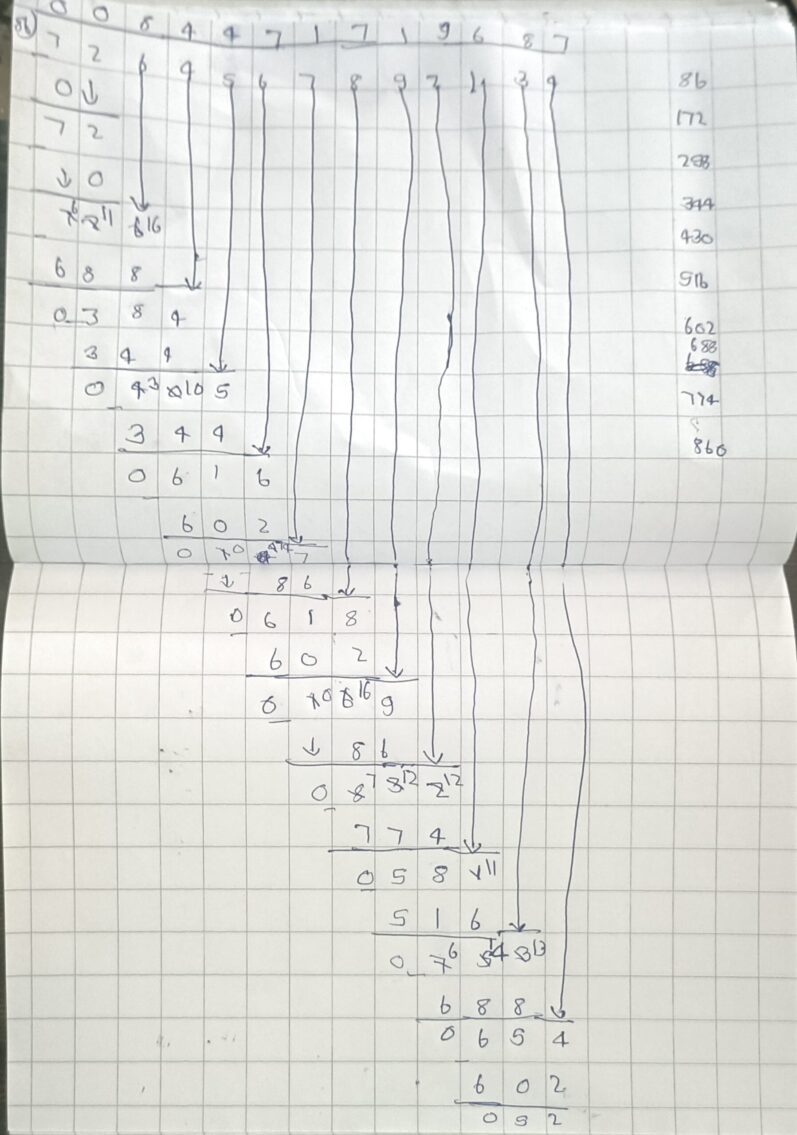 86) 0 0 8 4 4 7 1 7 1 9 6 8 7
- 7 2 6 4 5 6 7 8 9 2 1 3 4 86
0 ↓
7 2 172
- ↓ 0 258
7⁶ 2¹¹ 6¹⁶ 344
- 6 8 8 430
0 3 8 4 516
- 3 4 4 602
688
0 4³ 0¹⁰ 5 774
- 3 4 4
0 6 1 6 860
- 6 0 2
0 1⁰ 4¹⁴ 7
- ↓ 8 6
0 6 1 8
- 6 0 2
0 1⁰ 6¹⁶ 9
- ↓ 8 6
0 8⁷ 3¹² 2¹²
- 7 7 4
0 5 8 1¹¹
- 5 1 6
0 7⁶ 5¹⁴ 3¹³
- 6 8 8
0 6 5 4
- 6 0 2
0 5 2